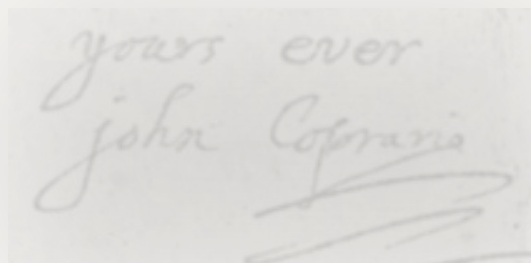 yours ever
john Coprario